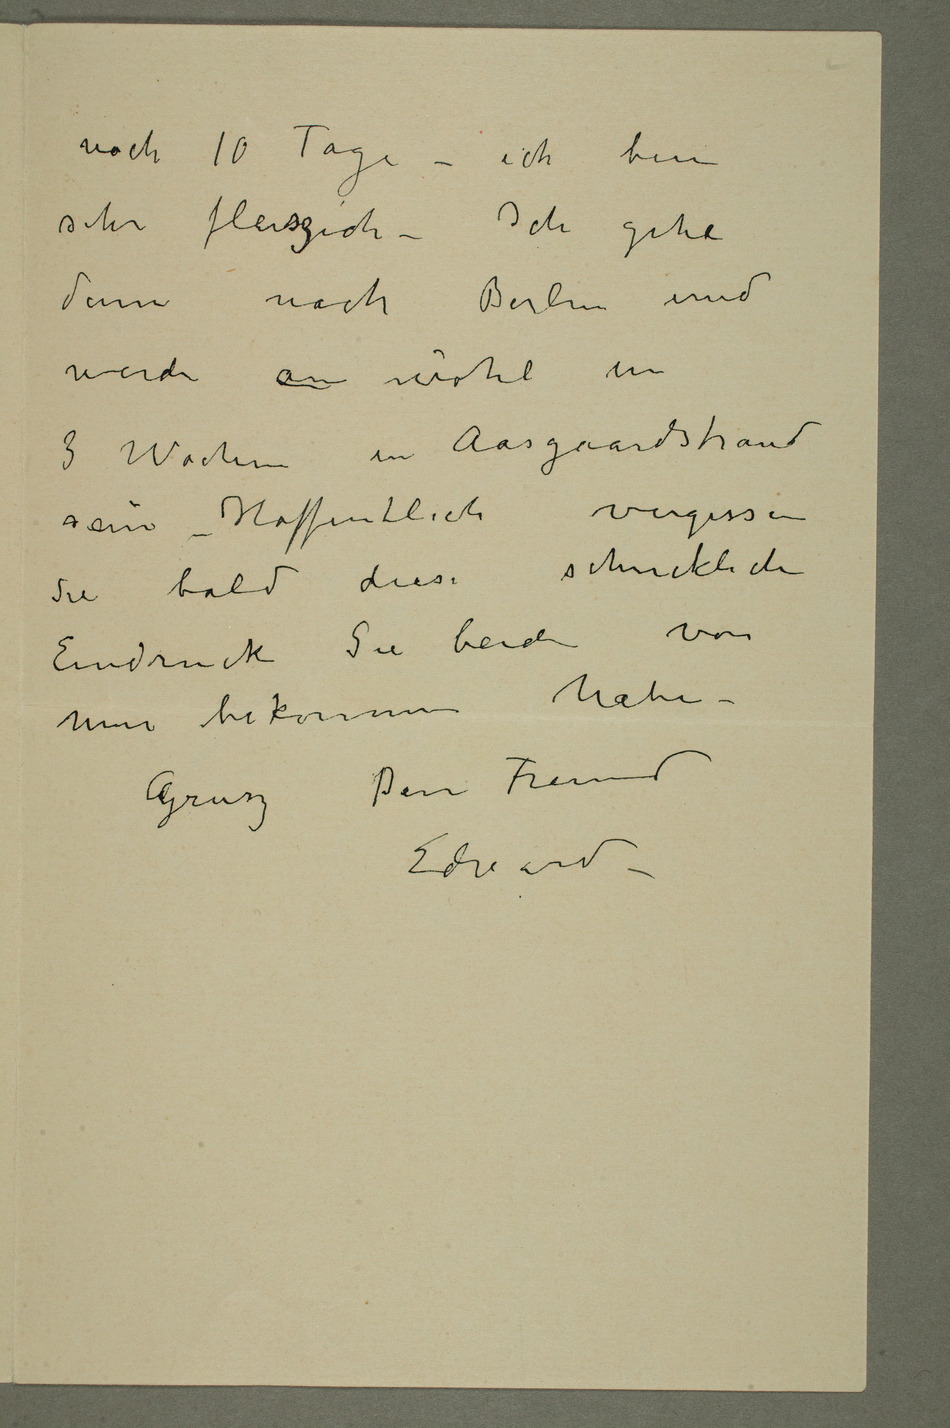 noch 10 Tage – ich bin
sehr fleiszich – Ich gehe
dann nach Berlin und
werde an wohl in
3 Wochen in Aasgaardstrand
sein – Hoffentlich vergessen
Sie bald diese schrecklichen
Eindruck Sie beiden von
mir bekommen haben –
Grusz Dein Freund
Edvard –